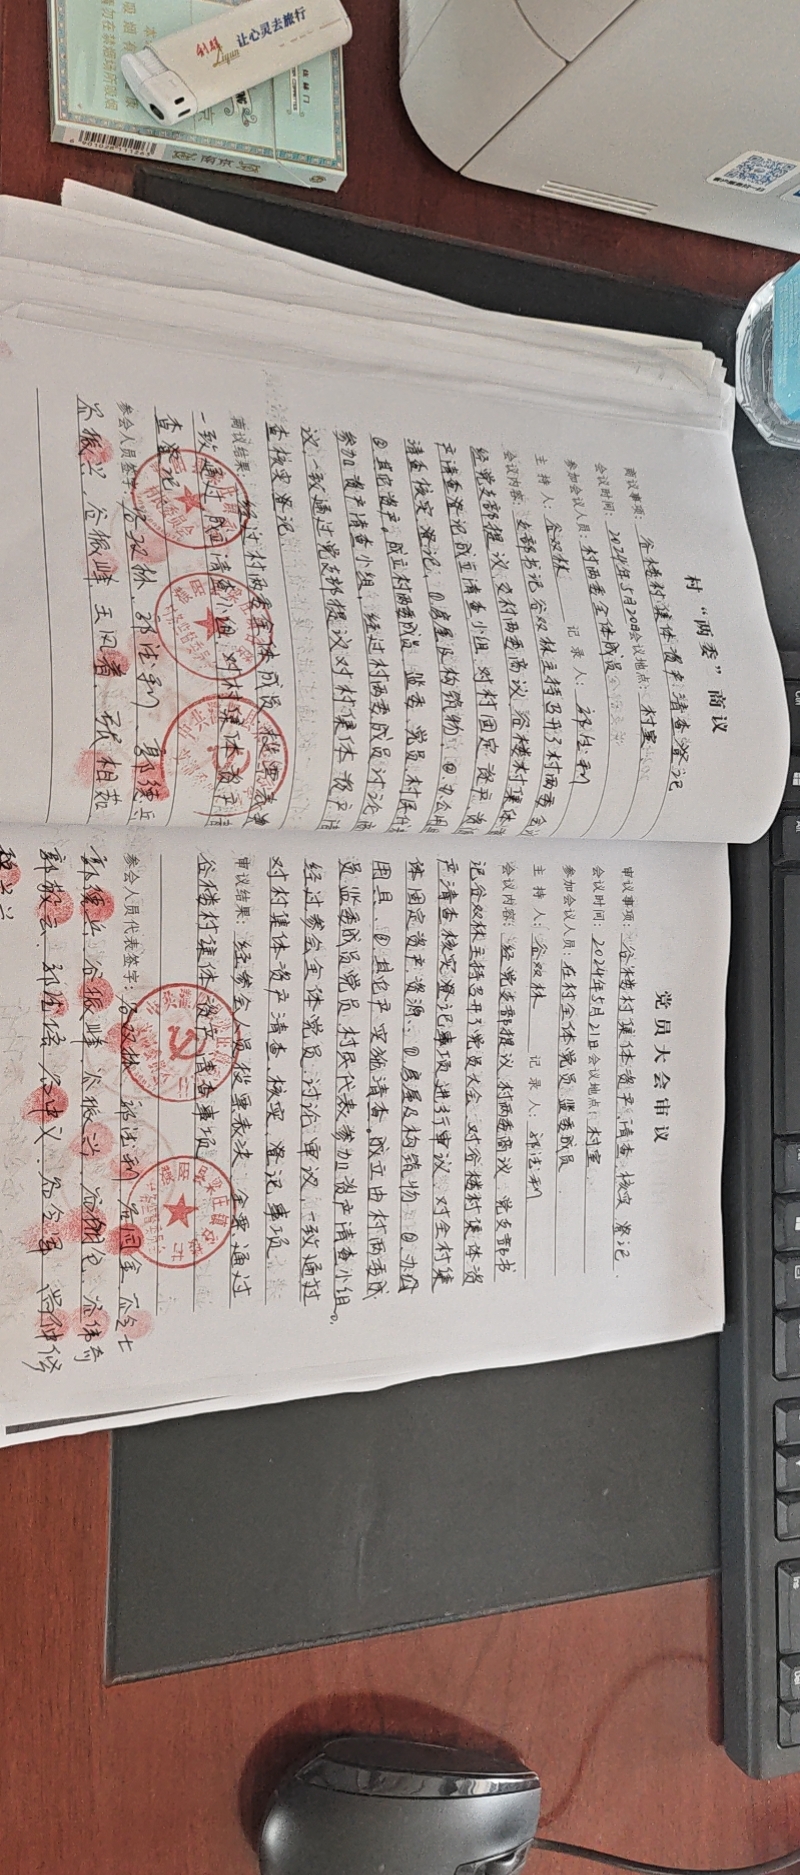 让心灵去旅行
村“两委”商议
商议事项：谷楼村集体资产清查登记
会议时间：2024年5月20日会议地点：村室
参加会议人员：村两委全体成员
主持人：谷双林 记录人：郭法利
会议内容：支部书记谷双林主持召开了村两委会议
经党支部提议交村两委商议谷楼村集体
产清查登记成立清查小组，对村固定资产
清查核实登记，①房屋及构筑物，②办公用
③其它资产。成立村两委成员、监委、党员、村民代
参加资产清查小组，经过村两委成员讨论
议，一致通过党支部提议对村集体资产清
查核实登记
商议结果：经过村两委全体成员投票表决
一致通过，成立清查小组，对村集体资产清
查登记
参会人员签字：谷双林、郭法利、郭德兵
谷振兴、谷振峰、王凤着、相茹
党员大会审议
审议事项：谷楼村集体资产清查、核实、登记.
会议时间：2024年5月21日会议地点：村室
参加会议人员：在村全体党员、监委成员
主持人：谷双林 记录人：郭法利
会议内容：经党支部提议，村两委商议，党支部书
记谷双林主持召开了党员大会，对谷楼村集体资
产清查核实登记事项进行审议，对全村集
体固定资产资源：①房屋及构筑物②办公
用具，③其它产实施清查。成立由村两委成
员监委成员党员村民代表参加资产清查小组。
经过参会全体党员讨论审议，一致通过
对村集体资产清查、核实、登记事项
审议结果：经参会人员投票表决，全票通过
谷楼村集体资产清查事项
参会人员代表签字：谷双林 郭法利
郭德兵 谷振峰 谷振兴
郭敬云 谷中义